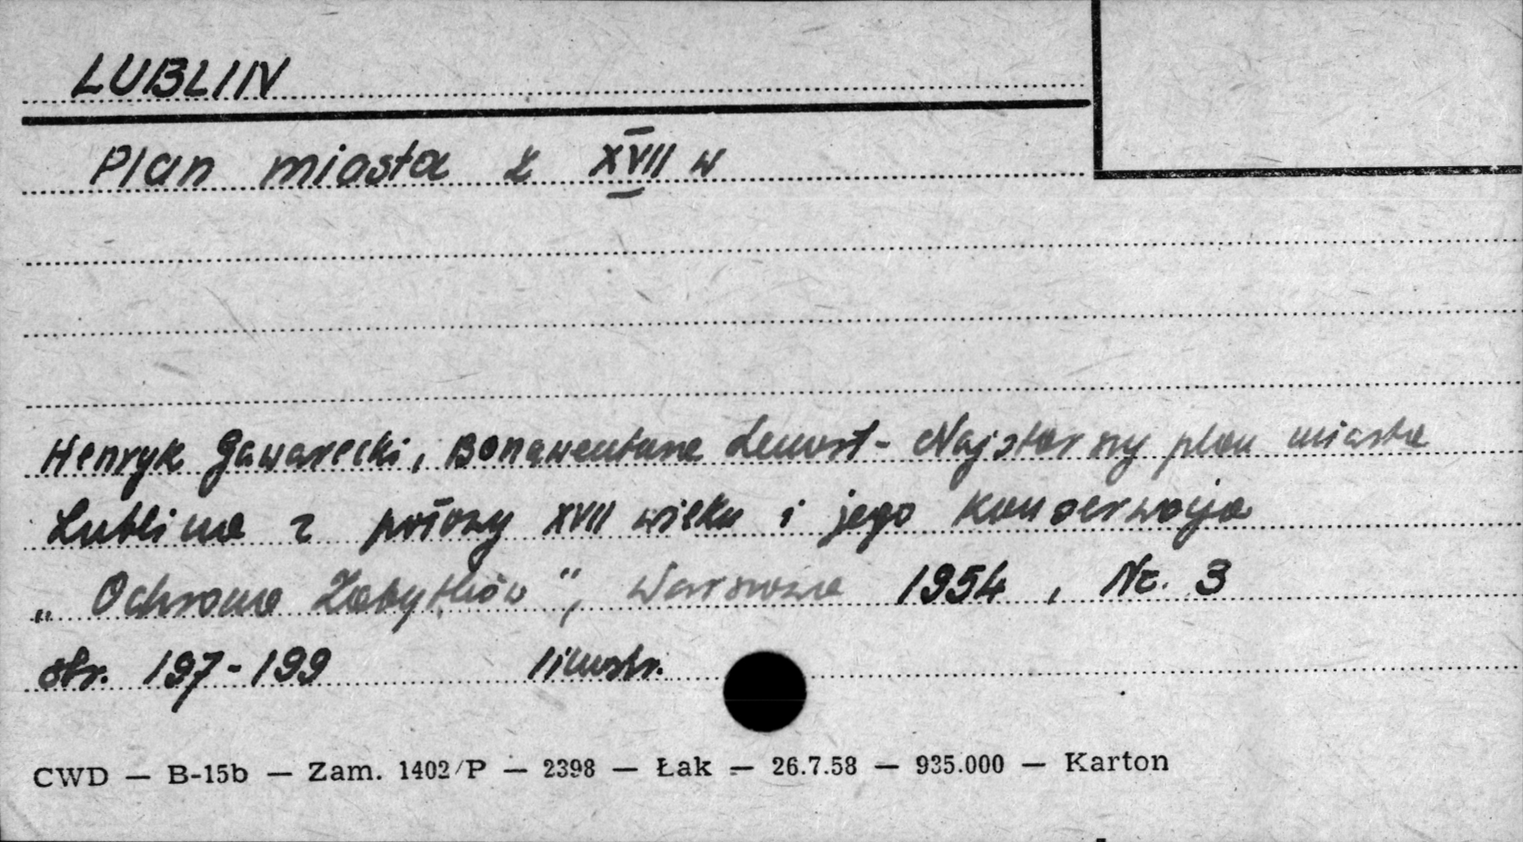 LUBLIN
Plan miasta z XVII w
Henryk Gawarecki, Bonawentura Lenart - Najstarszy plan miasta
Lublina z połowy XVII wieku i jego konserwacja
„Ochrona Zabytków", Warszawa 1954, Nr. 3
str. 197-199 1 ilustr.
CWD — B-15b — Zam. 1402/P — 2398 — Łak — 26.7.58 — 935.000 — Karton